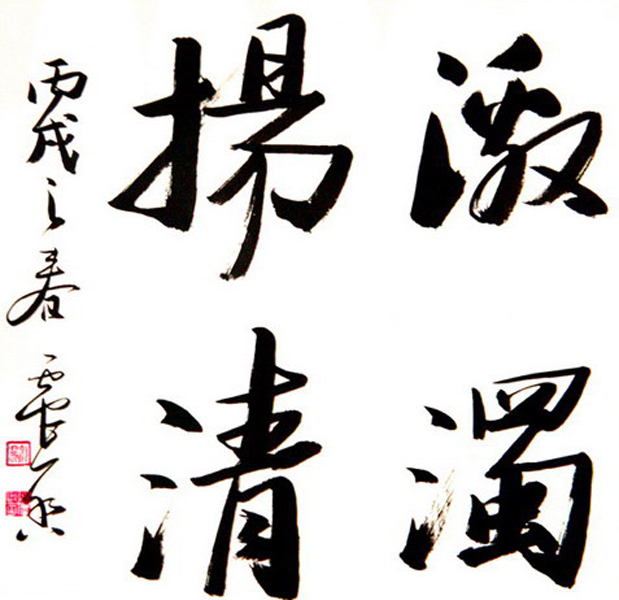 激濁
揚清
丙戌之春